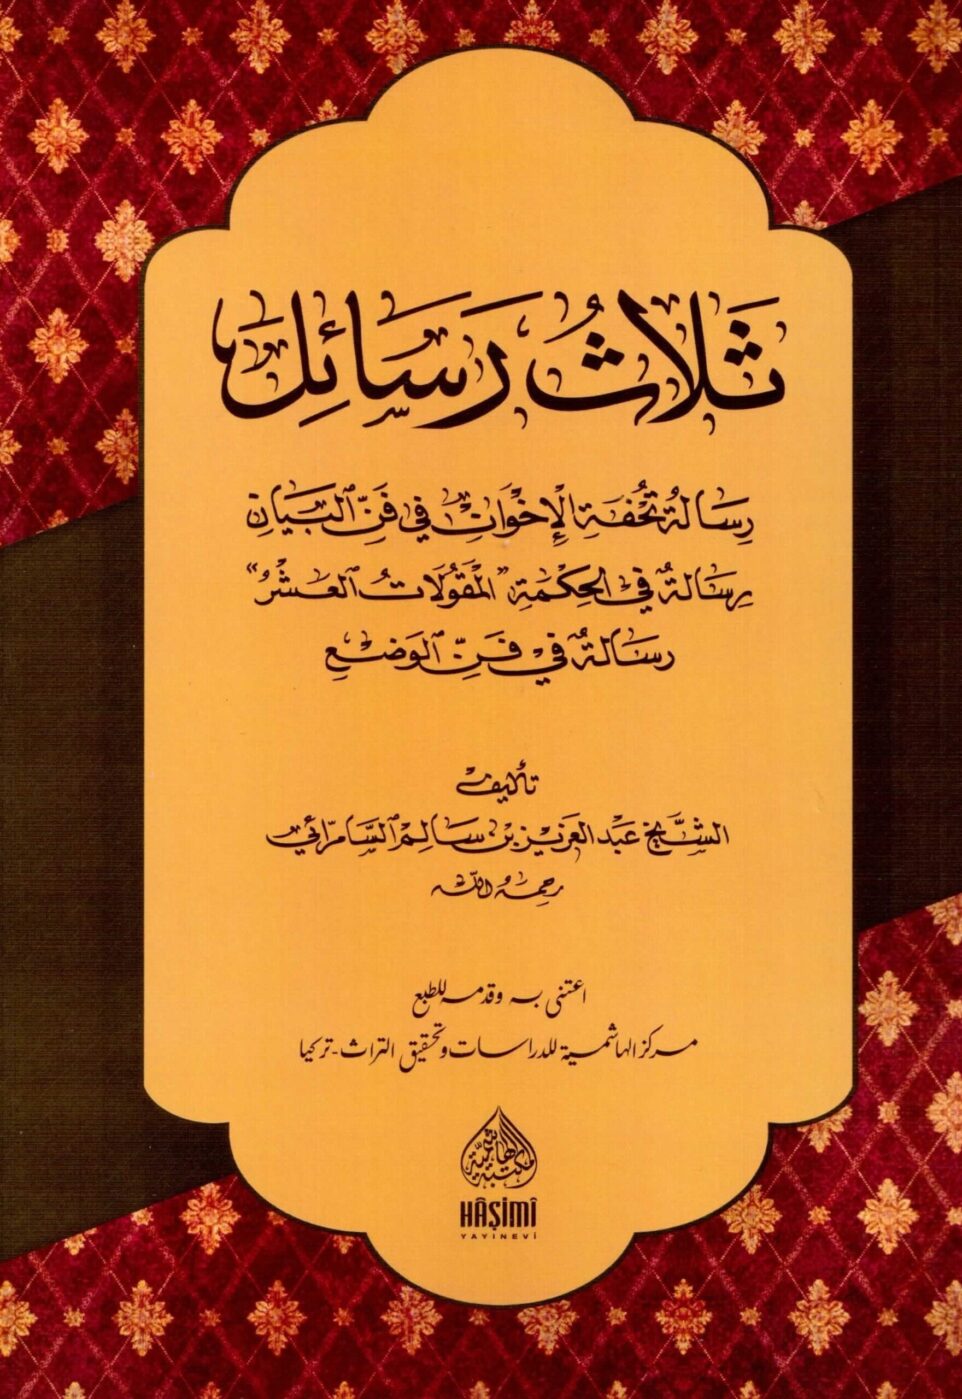 ثَلَاثُ رَسَائِلَ
رِسَالَةُ تُحْفَةِ الْإِخْوَانِ فِي فَنِّ الْبَيَانِ
رِسَالَةٌ فِي الْحِكْمَةِ "الْمَقُولَاتُ الْعَشْرُ"
رِسَالَةٌ فِي فَنِّ الْوَضْعِ
تأليف
الشَّيْخِ عَبْدِ الْعَزِيزِ بْنِ سَالِمٍ السَّامَرَّائِي
رحمه الله
اعتنى به وقدمه للطبع
مركز الهاشمية للدراسات وتحقيق التراث - تركيا
مكتبة الهاشمية
HÂŞİMÎ
YAYINEVİ